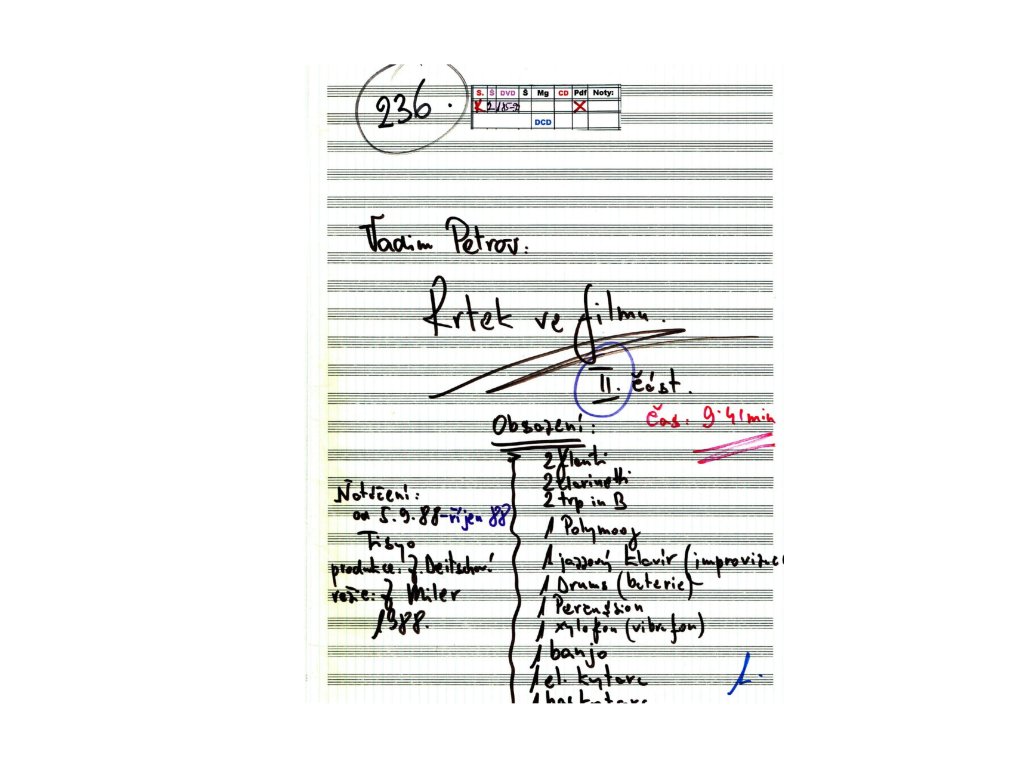 236.
S. Š DVD Š Mg CD Pdf Noty:
X X
DCD
Vadim Petrov:
Krtek ve filmu.
II. část.
čas: 9.41 min
Obsazení:
2 flauti
2 klarinetti
2 trp in B
1 Polymoog
1 jazzový klavír (improvizace
1 Drums (baterie)
1 Percussion
1 xylofon (vibrafon)
1 banjo
1 el. kytara
1 bas kytara
Natáčení:
od 5.9.88-říjen 88
produkce: Deitschová
režie: Miler
1988.